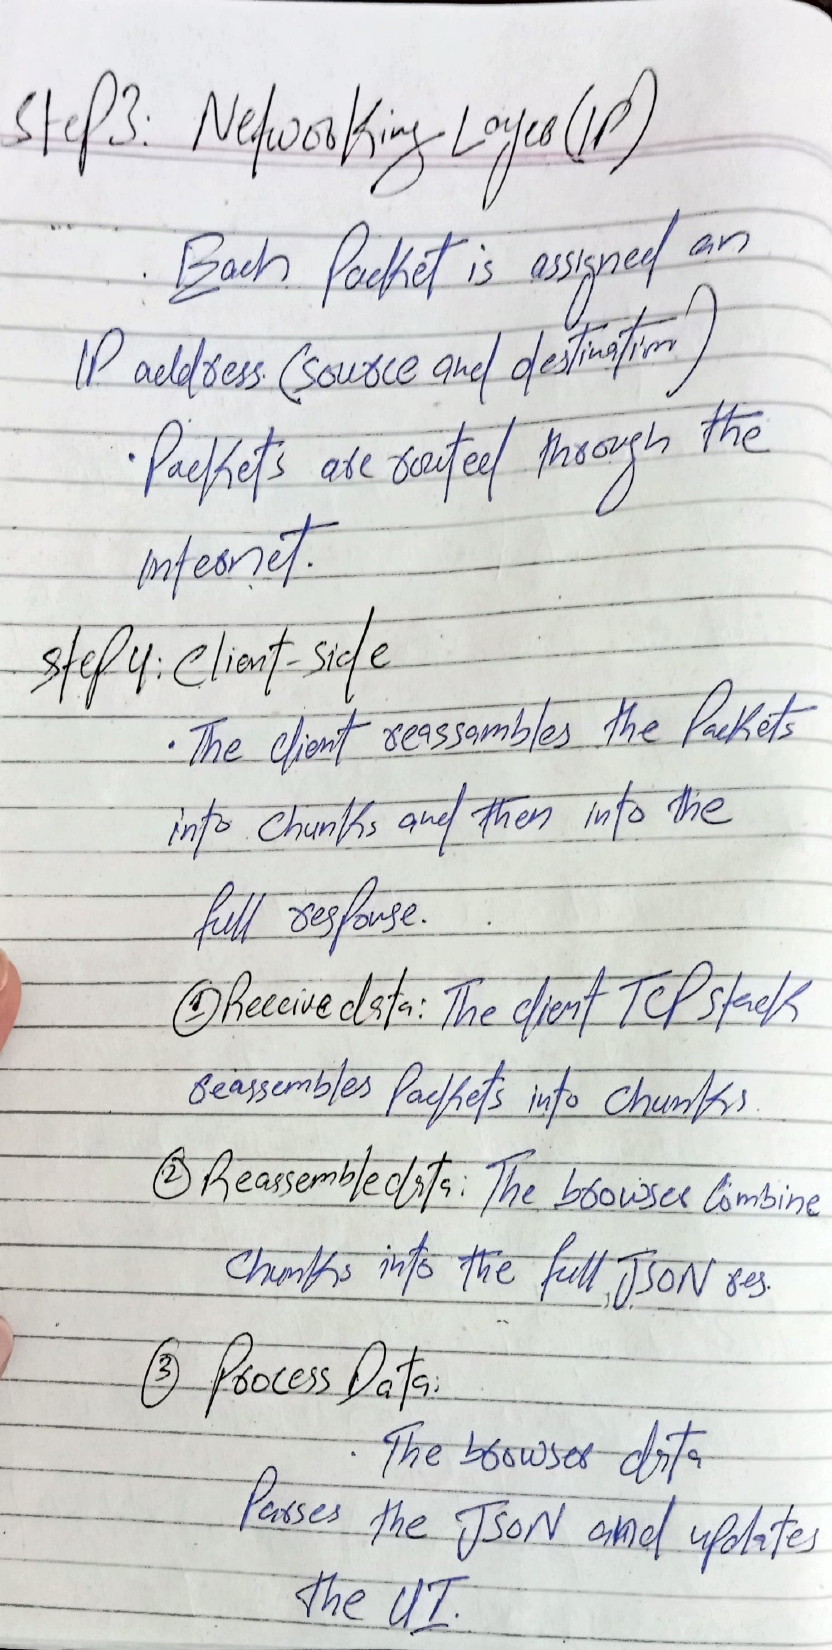 Step3: Networking Layer (IP)
. Each Packet is assigned an
IP address. (source and destination)
• Packets are routed through the
internet.
Step4: Client-side
• The client reassambles the Packets
into chunks and then into the
full response.
① Receive data: The client TCP stack
reassembles Packets into chunks.
② Reassemble data: The browser Combine
Chunks into the full JSON res.
③ Process Data:
. The browser data
Parses the JSON and updates
the UI.